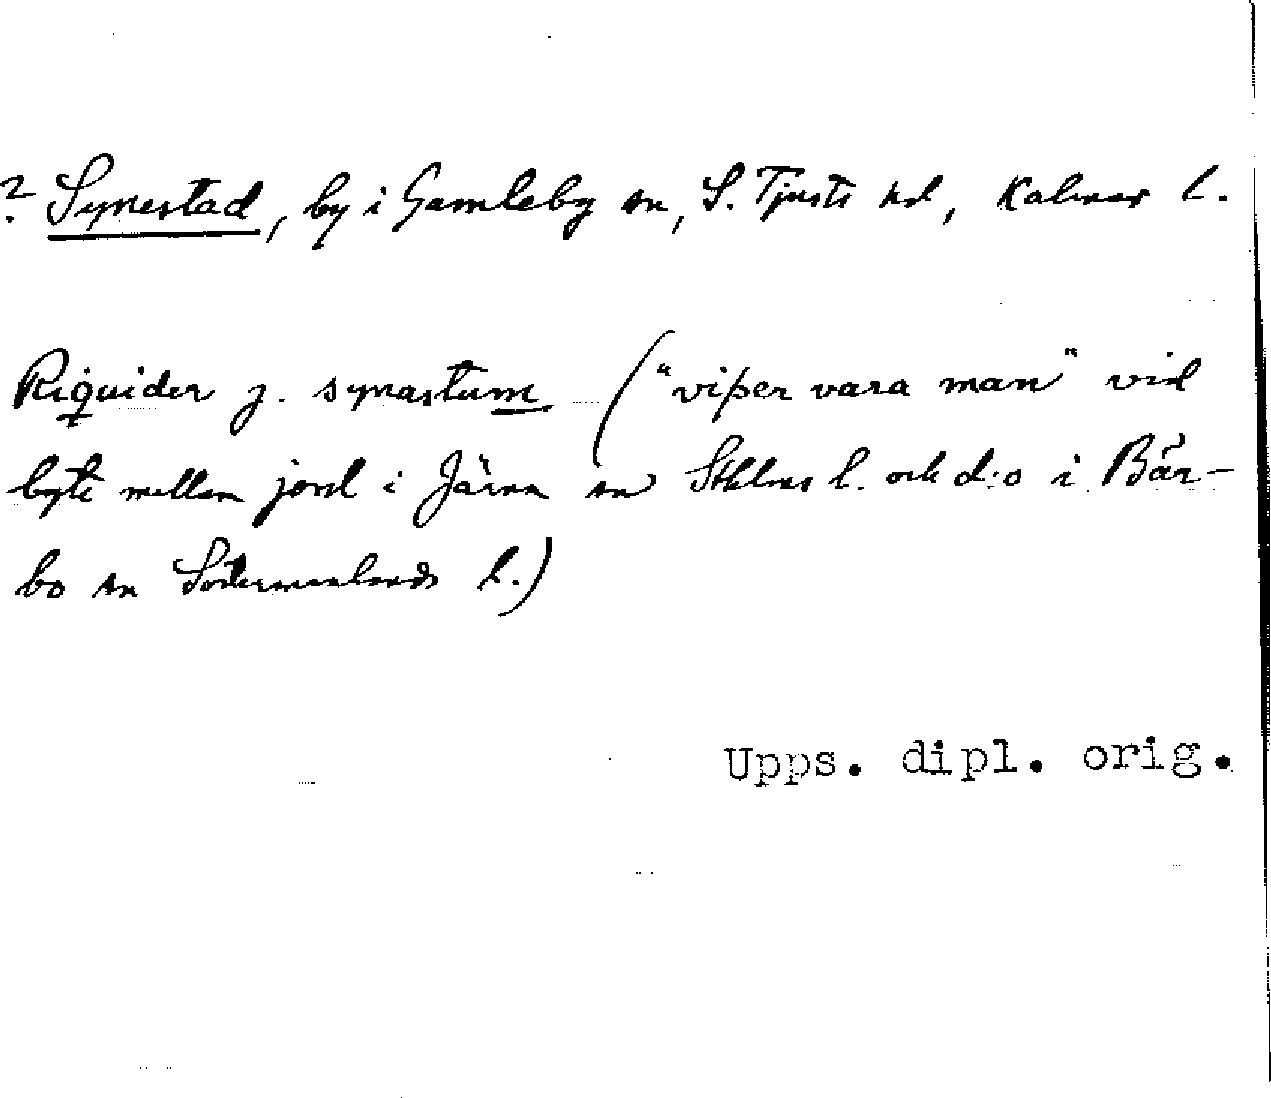 ? Synestad, by i Gamleby sn, S. Tjusts hd, Kalmar l.
Riquider j. synastum ("viþer vara man" vid
byte mellan jord i Järna sn Sthlms l. och d:o i Bär-
bo sn Södermanlands l.)
Upps. dipl. orig.